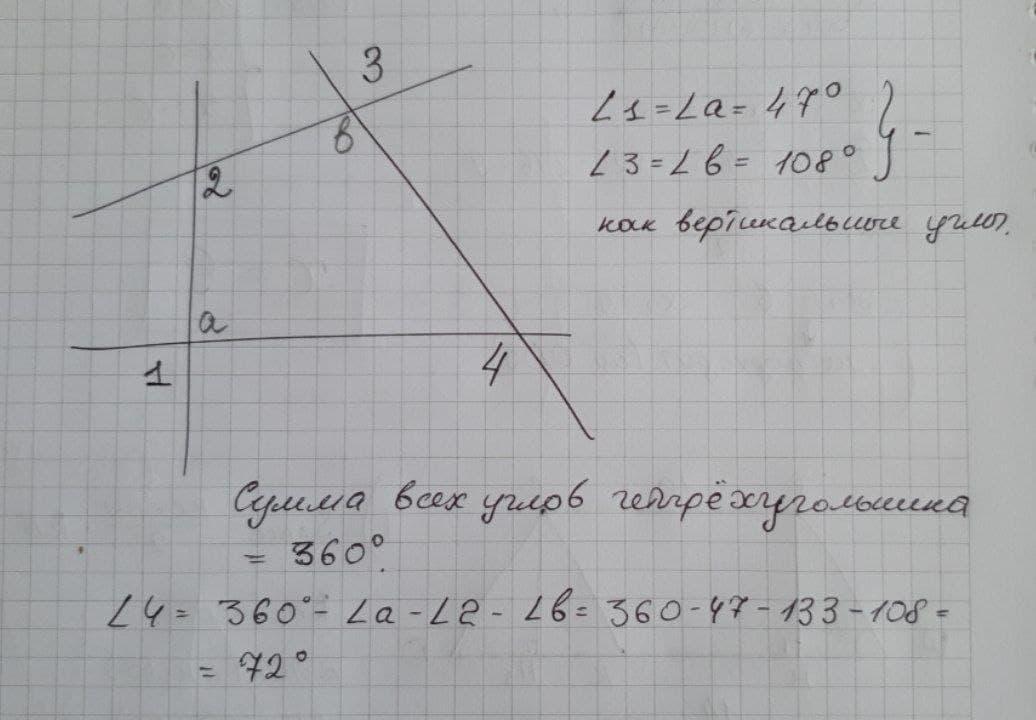 3
в
2
a
1
4
∠1 = ∠a = 47° }
∠3 = ∠в = 108° } -
как вертикальные углы.
Сумма всех углов четырёхугольника
= 360°.
∠4 = 360° - ∠a - ∠2 - ∠в = 360 - 47 - 133 - 108 =
= 72°